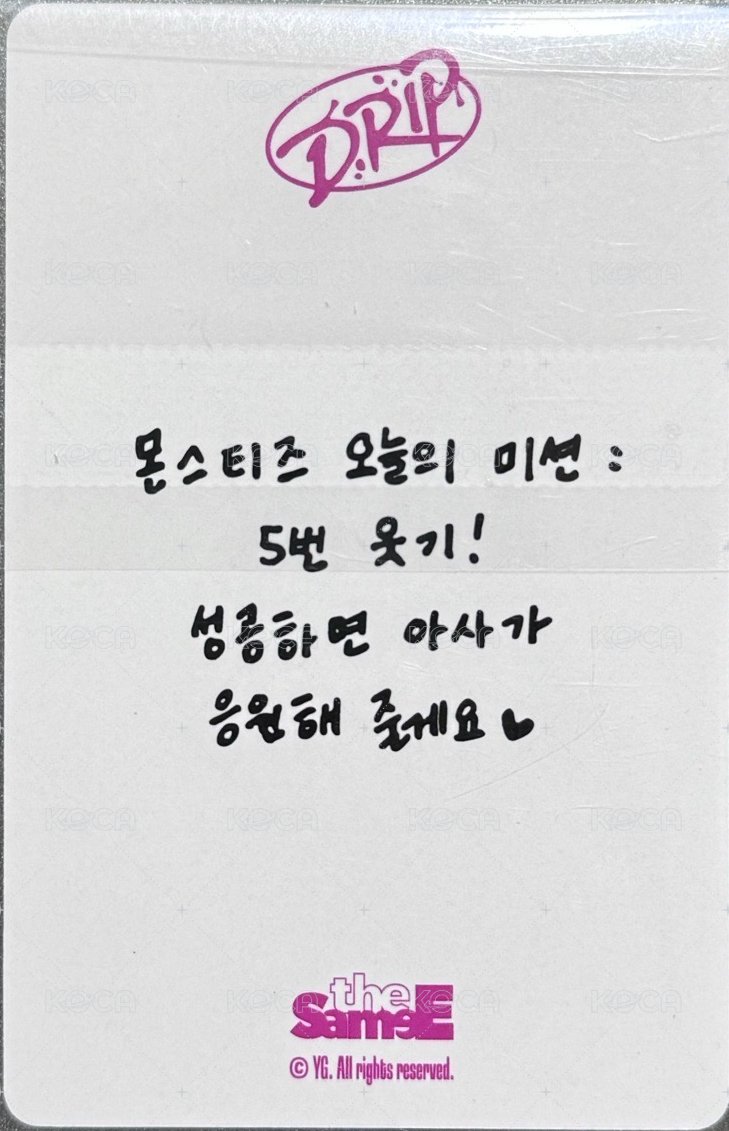 DRIP
몬스티즈 오늘의 미션 :
5번 웃기!
성공하면 아사가
응원해 줄게요♥
the
SameE
© YG. All rights reserved.
KOCA